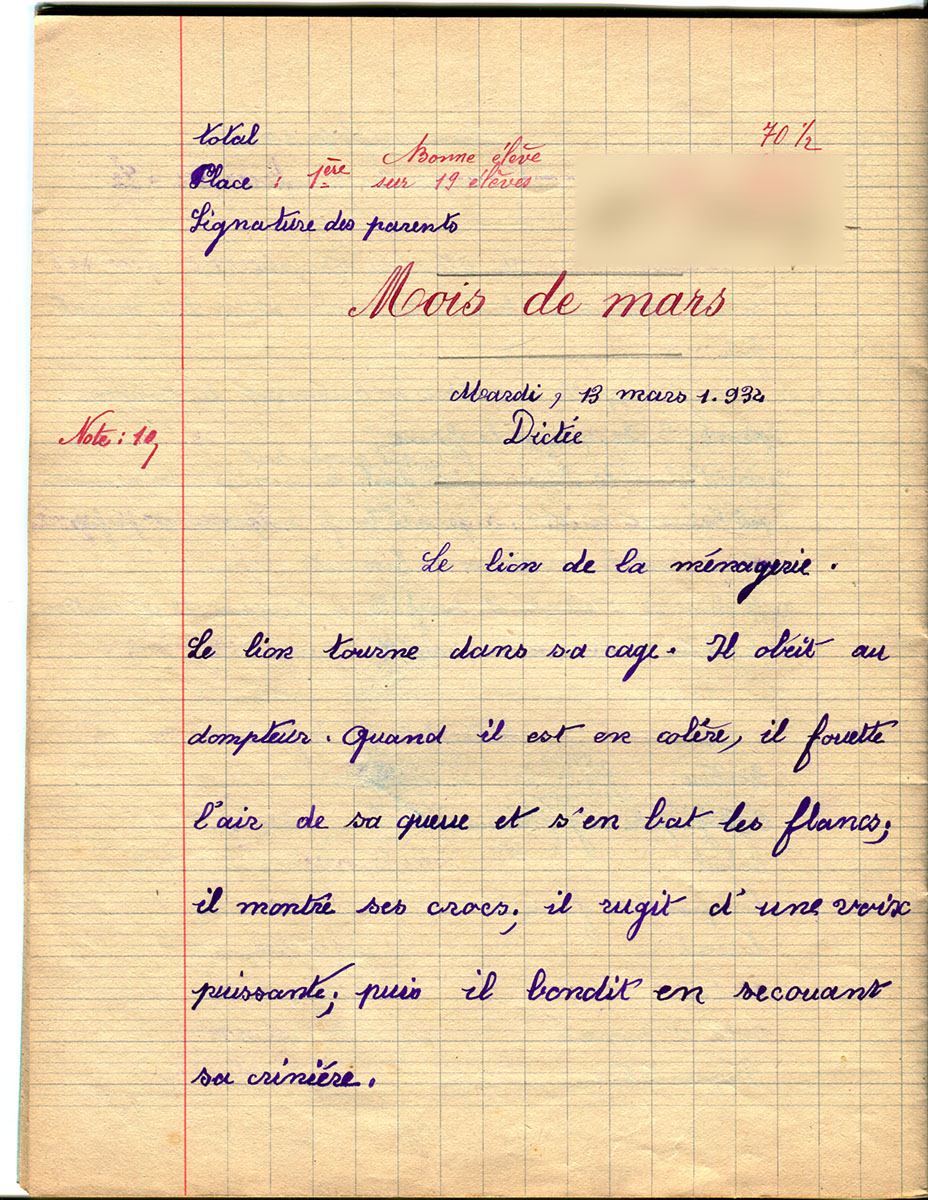 total
70 1/2
Bonne élève
Place : 1ère sur 19 élèves
Signature des parents
Mois de mars
Mardi, 13 mars 1.934
Note : 10
Dictée
Le lion de la ménagerie.
Le lion tourne dans sa cage. Il obéit au
dompteur. Quand il est en colère, il fouette
l'air de sa queue et s'en bat les flancs;
il montre ses crocs; il rugit d'une voix
puissante; puis il bondit en secouant
sa criniére.